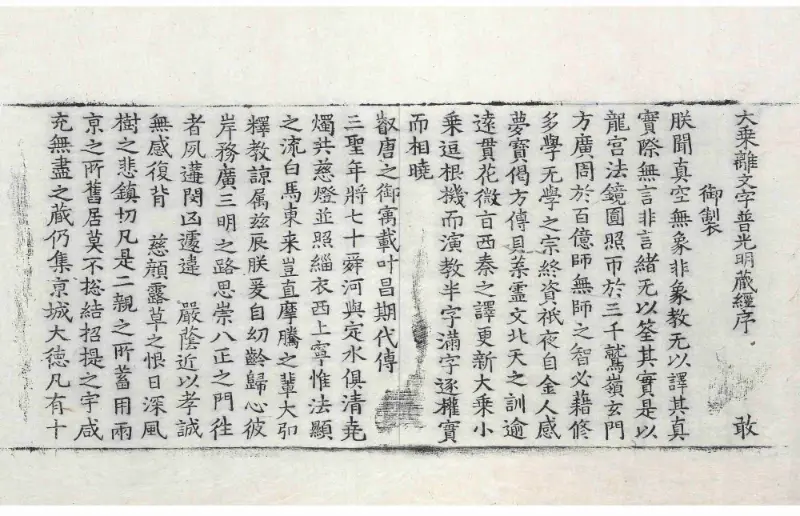 大乘離文字普光明藏經序 敢
御製
朕聞真空無象非象教无以譯其真
實際無言非言緒无以筌其實是以
龍宮法鏡圓照帀於三千鷲嶺玄門
方廣周於百億師無師之智必藉修
多學无學之宗終資祇夜自金人感
夢寶偈方傳貝葉靈文北天之訓逾
遠貫花微言西秦之譯更新大乘小
乘逗根機而演教半字滿字逐權實
而相曉
叡唐之御㝢載叶昌期代傳
三聖年將七十舜河與定水俱清堯
燭共慈燈並照緇衣西上寧惟法顯
之流白馬東来豈直摩騰之輩大弘
釋教諒属兹辰朕爰自幼齡歸心彼
岸務廣三明之路思崇八正之門徃
者夙遘閔凶遽違 嚴蔭近以孝誠
無感復背 慈顔露草之恨日深風
樹之悲鎮切凡是二親之所蓄用兩
京之所舊居莫不捴結招提之宇咸
充無盡之藏仍集京城大德凡有十